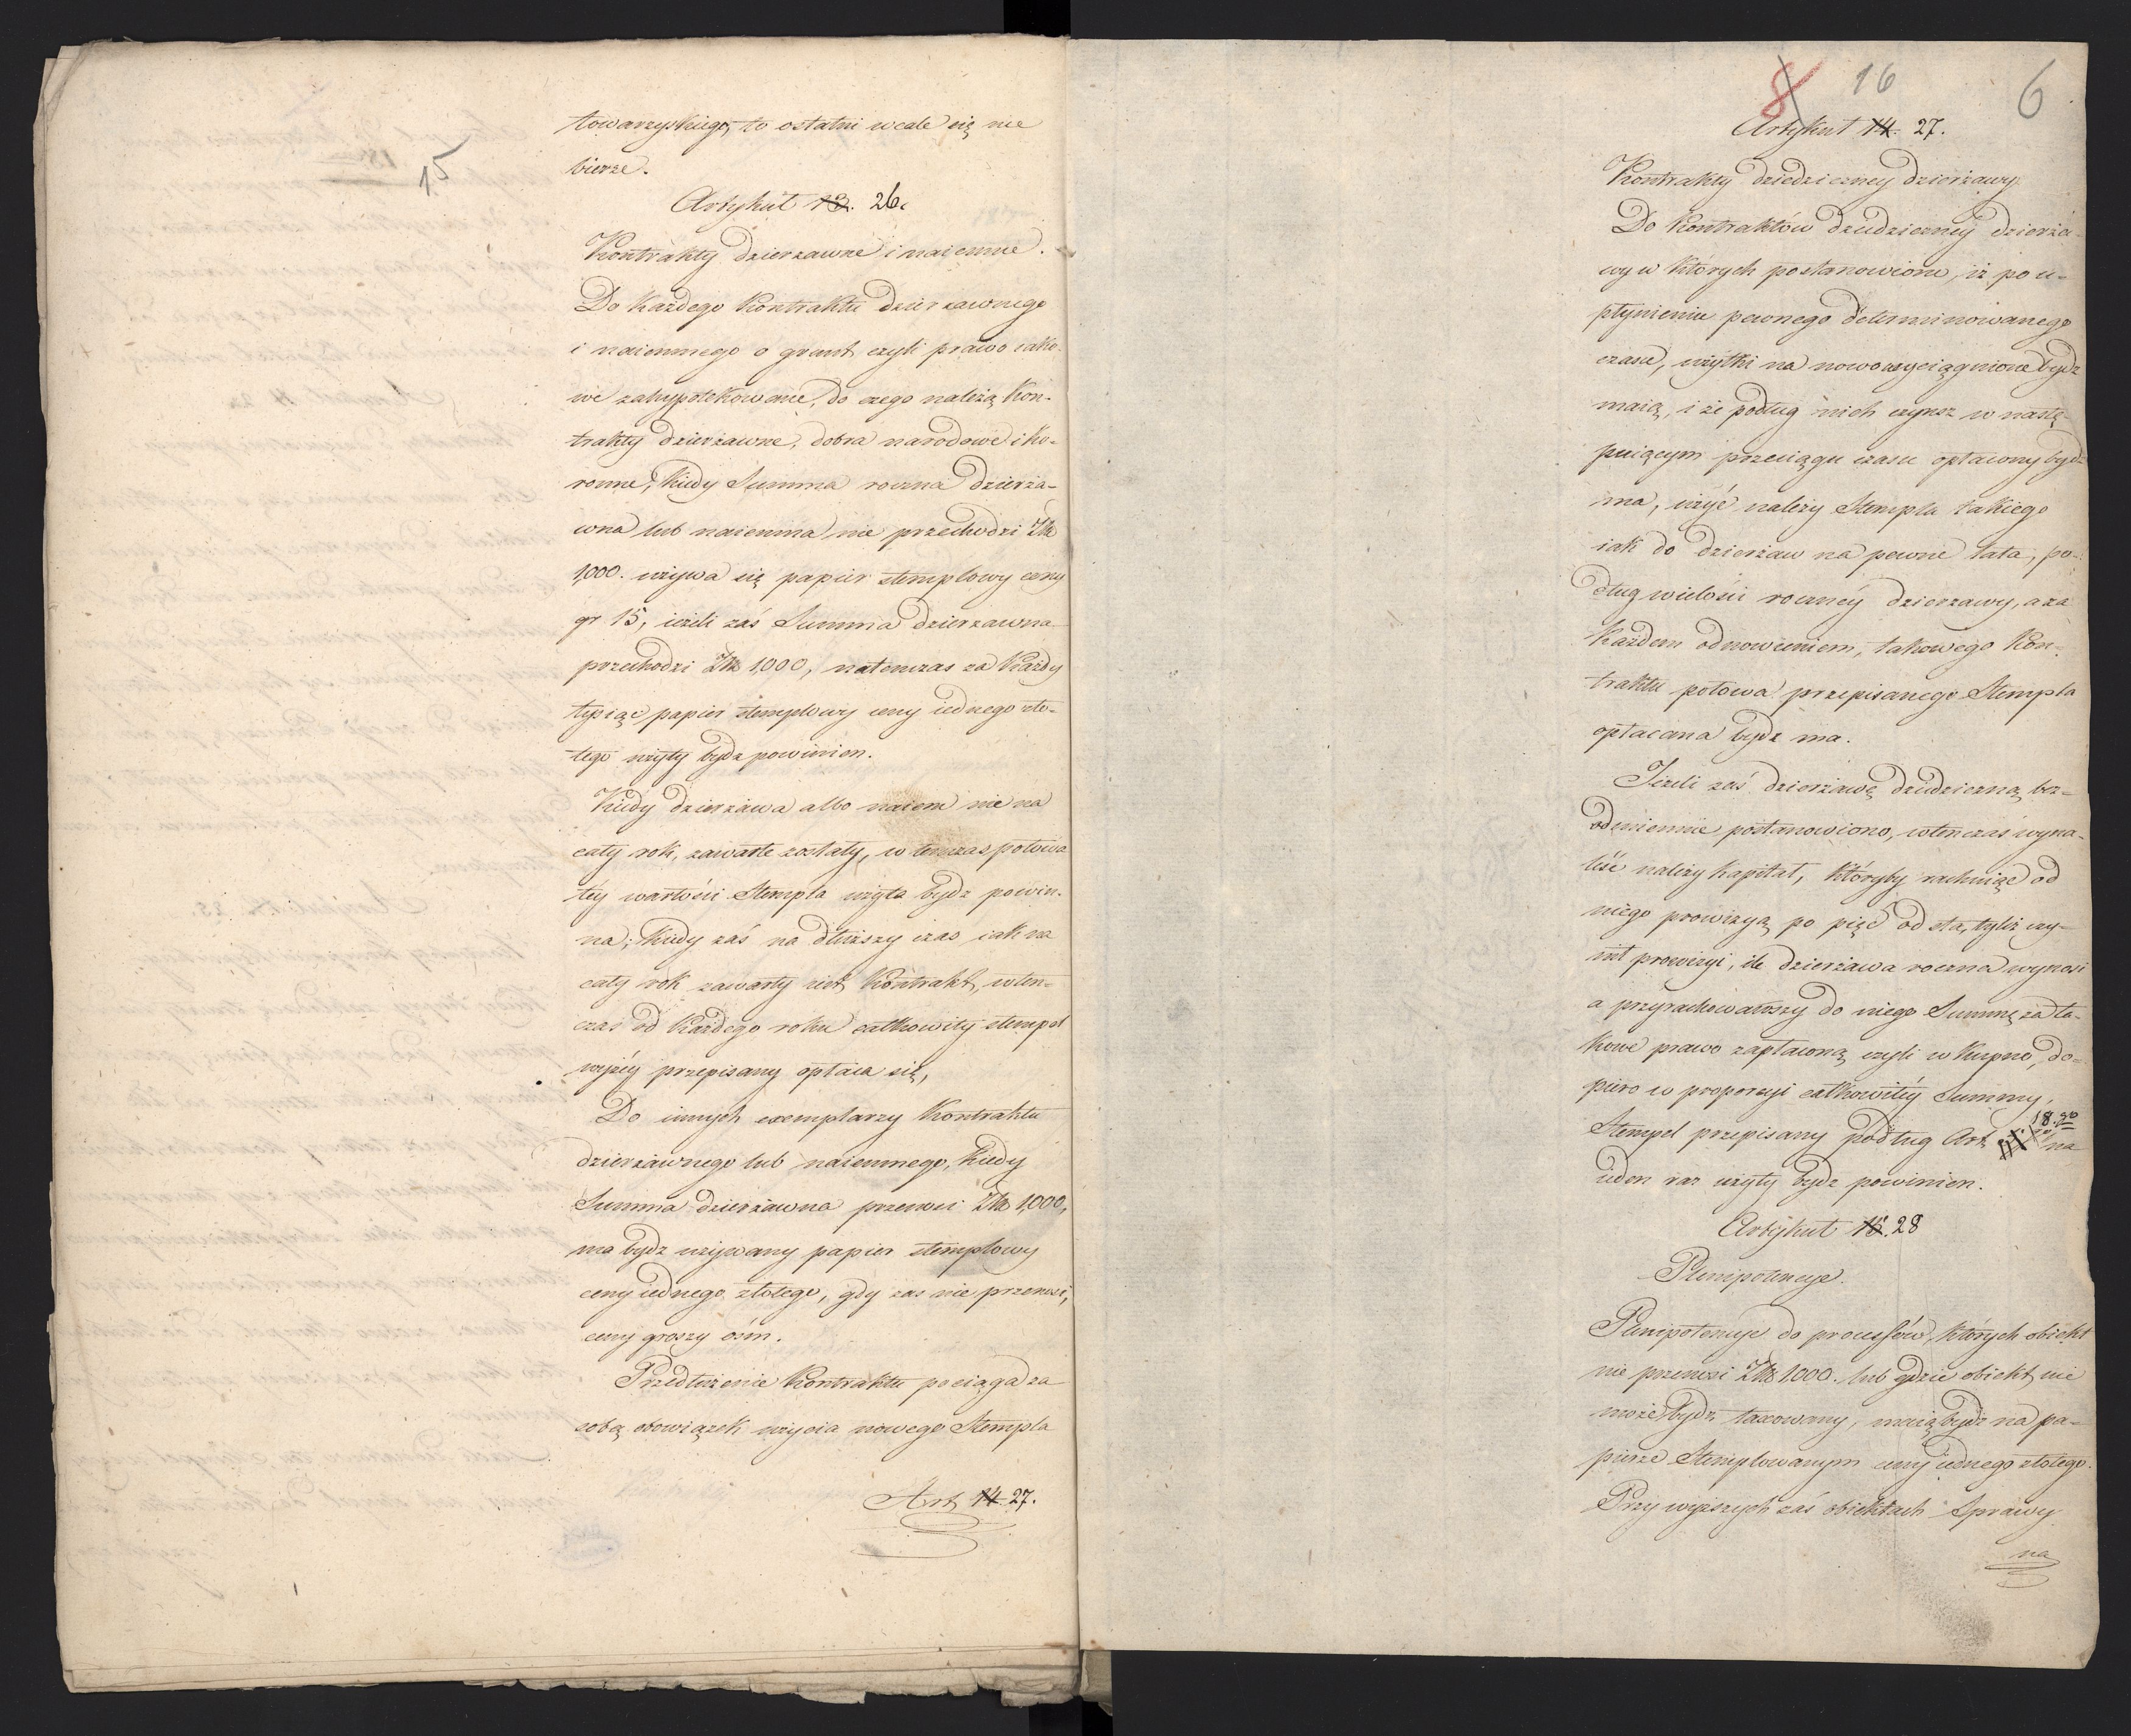 15
towarzyskiego, to ostatni wcale się nie
bierze.
Artykuł 13. 26.
Kontrakty dzierzawne i naiemne.
Do każdego Kontraktu dzierzawnego
i naiemnego o grunt czyli prawo iako-
we zahypotekowane, do czego należą Kon-
trakty dzierżawne, dobra narodowe i ko-
ronne, kiedy Summa roczna dzierża-
wna lub naiemna nie przechodzi Złł
1,000. używa się papier stemplowy ceny
gr 15, ieżeli zaś Summa dzierzawna
przechodzi Złł 1,000, natenczas za każdy
tysiąc papier stemplowy ceny iednego zło-
tego użyty bydź powinien.
Kiedy dzierzawa albo naiem nie na
cały rok, zawarte zostały, wtenczas połowa
téy wartości Stempla użyta bydź powin-
na; kiedy zaś na dłuższy czas iak na
cały rok zawarty iest Kontrakt, wten-
czas od każdego roku całkowity stempel
wyżéy przepisany opłaca się,
Do innych exemplarzy Kontraktu
dzierżawnego lub naiemnego, kiedy
Summa dzierżawna przenosi Złł 1,000,
ma bydź używany papier stemplowy
ceny iednego złotego, gdy zas nie przenosi,
ceny groszy ośm.
Przedłużenie Kontraktu pociąga za
sobą obowiązek użycia nowego Stempla
Art 14. 27.
8 16 6
Artykuł 14. 27.
Kontrakty dziedziczney dzierżawy.
Do Kontraktów dziedziczney dzierża-
wy w których postanowiono, iż po u-
płynieniu pewnego determinowanego
czasu, użytki na nowo wyciągnione bydź
maią, i że podług nich czynsz w nastę-
puiącym przeciągu czasu opłacony bydź
ma, użyć należy Stempla takiego
iak do dzierżaw na pewne lata, po-
dług wielości rocznéy dzierzawy, a za
każdem odnowieniem, takowego Kon-
traktu połowa przepisanego Stempla
opłacana bydź ma.
Jeżeli zaś dzierżawę dziedziczną bez-
odmiennie postanowiono, wtenczas wyna-
leść należy kapitał, któryby rachuiąc od
niego prowizyą po pięć od sta, tyleż czy-
nił prowizyi, ile dzierżawa roczna wynosi
a przyrachowawszy do niego Summę za ta-
kowe prawo zapłaconą czyli wkupno, do-
piero w proporcyi całkowitéy Summy,
Stempel przepisany podług Art 18.go na
ieden raz użyty bydź powinien.
Artykuł 15. 28
Plenipotencye.
Plenipotencye do processów, których obiekt
nie przenosi Złł 1000. lub gdzie obiekt nie
może bydź taxowany, maią bydź na pa-
pierze Stemplowanym ceny iednego złotego.
Przy wyższych zaś obiektach Sprawy
na